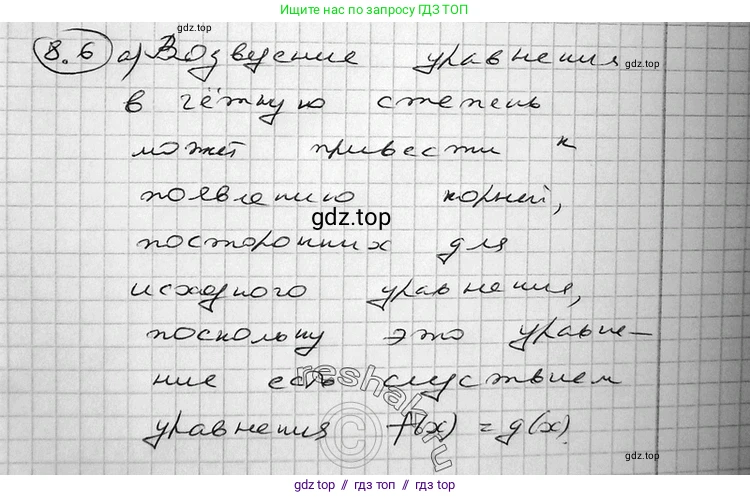 Ищите нас по запросу ГДЗ ТОП
8.6 а) Возведение уравнения
gdz.top
в чётную степень
может привести к
появлению корней,
gdz.top
посторонних для
исходного уравнения,
поскольку это уравне-
gdz.top
ние есть следствием
уравнения f(x) = g(x).
reshak.ru
©
gdz.top
gdz.top // gdz.top // gdz.top